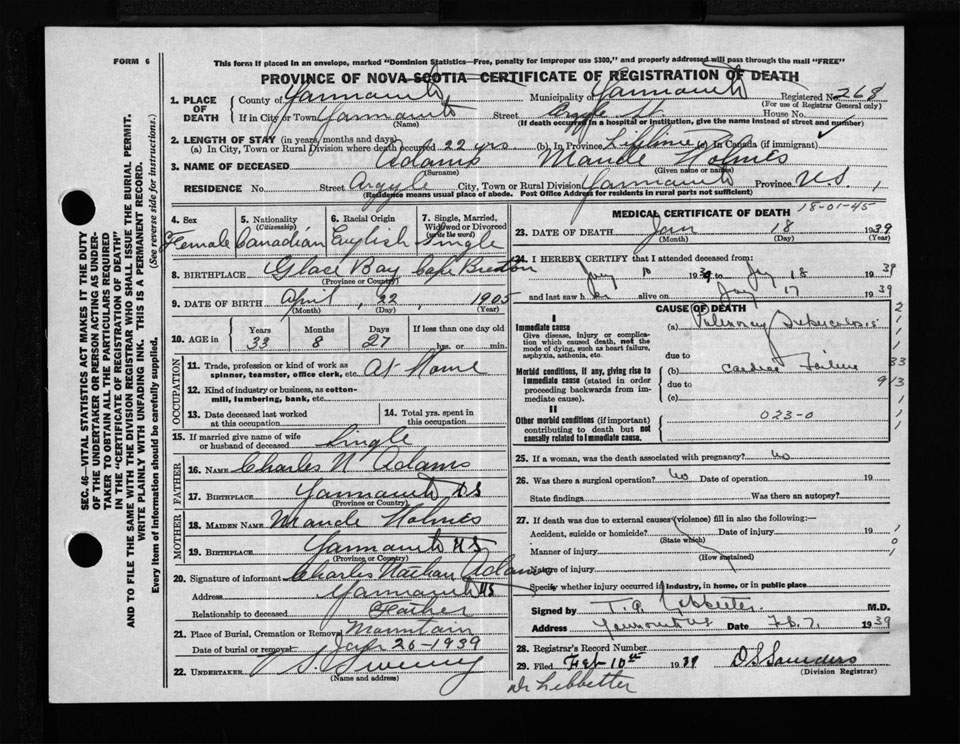 FORM 6
This form if placed in an envelope, marked "Dominion Statistics—Free, penalty for improper use $300," and properly addressed will pass through the mail "FREE"
PROVINCE OF NOVA SCOTIA—CERTIFICATE OF REGISTRATION OF DEATH
1. PLACE OF DEATH County of Yarmouth Municipality of Yarmouth Registered No. 268
(For use of Registrar General only)
If in City or Town Yarmouth Street Argyle St House No.
(Name) (If death occurred in a hospital or institution, give the name instead of street and number)
2. LENGTH OF STAY (in years/months and days)
(a) In City, Town or Rural Division where death occurred 22 yrs (b). In Province Lifetime (c) In Canada (if immigrant)
3. NAME OF DECEASED Adams Maude Holmes
(Surname) (Given name or names)
RESIDENCE No. Street Argyle City, Town or Rural Division Yarmouth Province N.S.
(Residence means usual place of abode. Post Office Address for residents in rural parts not sufficient)
4. Sex 5. Nationality (Citizenship) 6. Racial Origin 7. Single, Married, Widowed or Divorced (write the word)
Female Canadian English Single
8. BIRTHPLACE Glace Bay Cape Breton
(Province or Country)
9. DATE OF BIRTH April, 22, 1905
(Month) (Day) (Year)
10. AGE in Years Months Days If less than one day old
33 8 27 hrs. or min.
OCCUPATION
11. Trade, profession or kind of work as spinner, teamster, office clerk, etc. At Home
12. Kind of industry or business, as cotton-mill, lumbering, bank, etc.
13. Date deceased last worked at this occupation
14. Total yrs. spent in this occupation
15. If married give name of wife or husband of deceased Single
FATHER
16. NAME Charles N Adams
17. BIRTHPLACE Yarmouth NS
(Province or Country)
MOTHER
18. MAIDEN NAME Maude Holmes
19. BIRTHPLACE Yarmouth NS
(Province or Country)
20. Signature of informant Charles Nathan Adams
Address Yarmouth NS
Relationship to deceased Father
21. Place of Burial, Cremation or Removal Mountain
Date of burial or removal Jan 20-1939
22. UNDERTAKER V S. Sweeny
(Name and address)
MEDICAL CERTIFICATE OF DEATH 18-01-45
23. DATE OF DEATH Jan 18 1939
(Month) (Day) (Year)
24. I HEREBY CERTIFY that I attended deceased from:
Jany 10 1939 to Jany 18 1939
and last saw her alive on Jany 17 1939
CAUSE OF DEATH
I
Immediate cause
Give disease, injury or complication which caused death, not the mode of dying, such as heart failure, asphyxia, asthenia, etc.
(a) Pulmonary Tuberculosis
due to
Morbid conditions, if any, giving rise to immediate cause (stated in order proceeding backwards from immediate cause).
(b) Cardiac Failure
due to
(c)
II
Other morbid conditions (if important) contributing to death but not causally related to immediate cause.
023-0
2
1
1
1
33
913
1
1
25. If a woman, was the death associated with pregnancy? no
26. Was there a surgical operation? no Date of operation 19
State findings Was there an autopsy?
27. If death was due to external causes (violence) fill in also the following:—
Accident, suicide or homicide? Date of injury 19
(State which)
Manner of injury
(How sustained)
Nature of injury
Specify whether injury occurred in industry, in home, or in public place
1
0
1
Signed by T.A. Lebbetter. M.D.
Address Yarmouth NS Date Feb 7. 1939
28. Registrar's Record Number
29. Filed Feb-10th 1939 D S Saunders
(Division Registrar)
Dr Lebbetter
SEC. 46—VITAL STATISTICS ACT MAKES IT THE DUTY
OF THE UNDERTAKER OR PERSON ACTING AS UNDER-
TAKER TO OBTAIN ALL THE PARTICULARS REQUIRED
IN THE "CERTIFICATE OF REGISTRATION OF DEATH"
AND TO FILE THE SAME WITH THE DIVISION REGISTRAR WHO SHALL ISSUE THE BURIAL PERMIT.
WRITE PLAINLY WITH UNFADING INK. THIS IS A PERMANENT RECORD.
Every item of information should be carefully supplied. (See reverse side for instructions.)